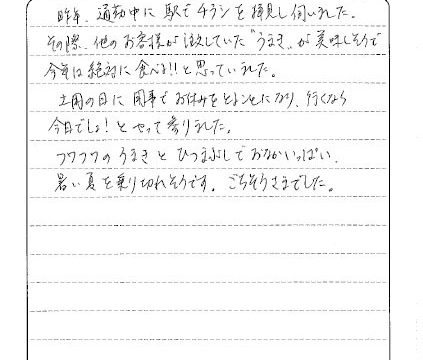 昨年、通勤中に駅でチラシを拝見し伺いました。
その際、他のお客様が注文していた"うまき"が美味しそうで
今年は絶対に食べる!!と思っていました。
土用の日に用事でお休みをとることになり、行くなら
今日でしょ!とやって参りました。
フワフワのうまきとひつまぶしでおなかいっぱい、
暑い夏を乗り切れそうです。ごちそうさまでした。